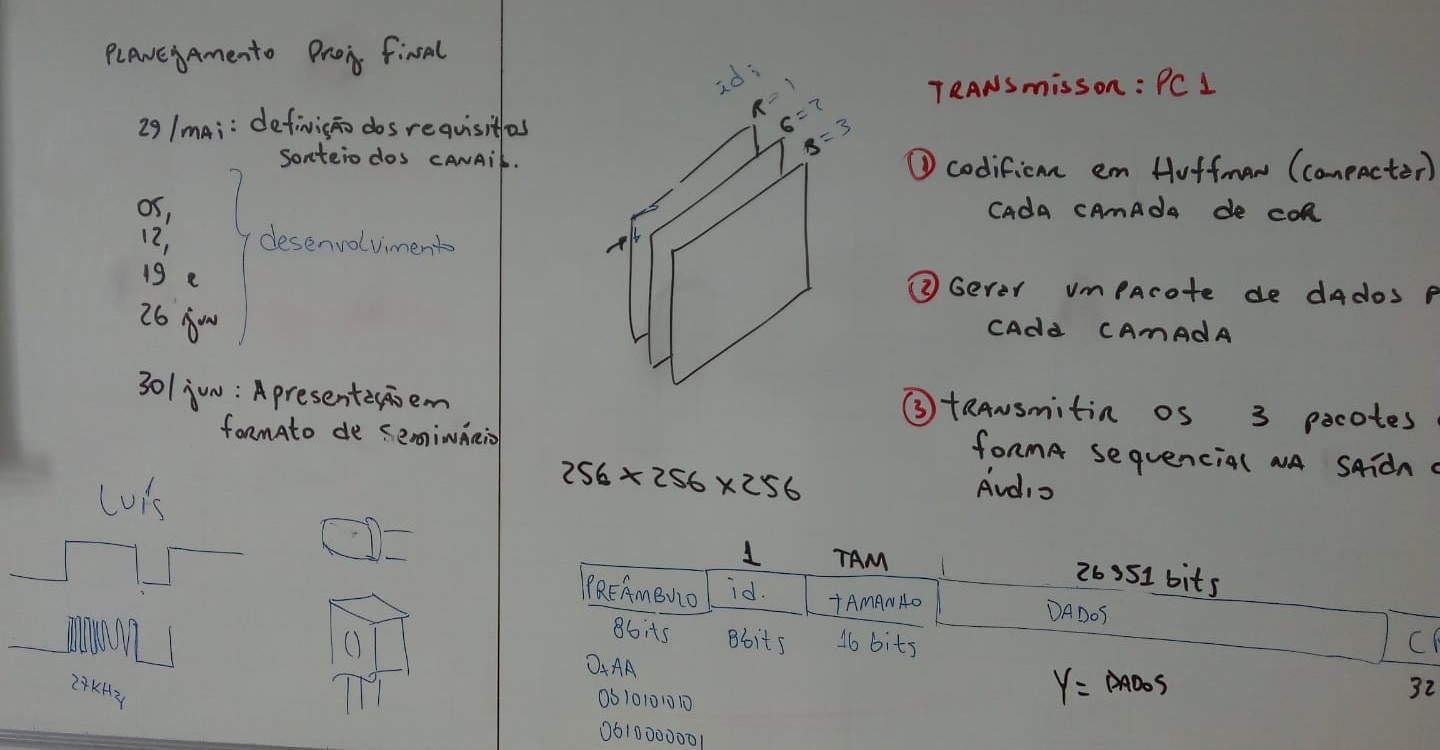 PLANEJAMENTO PROJ. FINAL
29/MAI: definição dos requisitos
SORTEIO dos CANAIS.
05,
12,
19 e
26 jun
desenvolvimento
30/jun: Apresentação em
formato de seminário
Luís
27KHz
id:
R=1
G=2
B=3
256 x 256 x 256
TRANSMISSOR: PC1
① Codificar em Huffman (compactar)
CADA CAMADA de cor
② Gerar um pacote de dados P
CADA CAMADA
③ transmitir os 3 pacotes
forma sequencial na saída
Áudio
1 TAM 26951 bits
PREÂMBULO id. TAMANHO DADOS
8bits 8bits 16 bits
0xAA
0b10101010
0b10000001
Y = DADOS
32